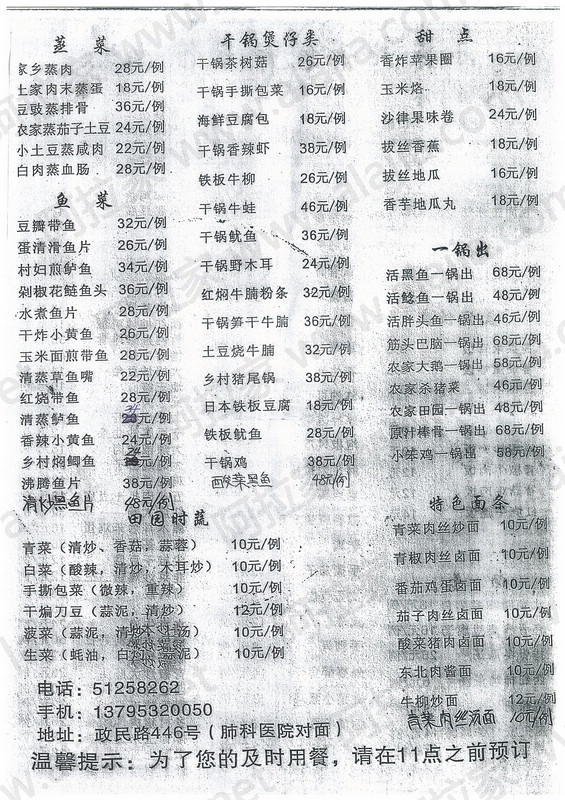 蒸 菜
家乡蒸肉 28元/例
土家肉末蒸蛋 18元/例
豆豉蒸排骨 36元/例
农家蒸茄子土豆 24元/例
小土豆蒸咸肉 22元/例
白肉蒸血肠 28元/例
鱼 菜
豆瓣带鱼 32元/例
蛋清滑鱼片 26元/例
村妇煎鲈鱼 34元/例
剁椒花鲢鱼头 36元/例
水煮鱼片 28元/例
干炸小黄鱼 26元/例
玉米面煎带鱼 28元/例
清蒸草鱼嘴 22元/例
红烧带鱼 28元/例
清蒸鲈鱼 34元/例
香辣小黄鱼 24元/例
乡村焖鲫鱼 24元/例
沸腾鱼片 38元/例
清炒黑鱼片 48元/例
干锅煲仔类
干锅茶树菇 26元/例
干锅手撕包菜 16元/例
海鲜豆腐包 18元/例
干锅香辣虾 38元/例
铁板牛柳 26元/例
干锅牛蛙 46元/例
干锅鱿鱼 36元/例
干锅野木耳 24元/例
红焖牛腩粉条 32元/例
干锅笋干牛腩 36元/例
土豆烧牛腩 32元/例
乡村猪尾锅 38元/例
日本铁板豆腐 18元/例
铁板鱿鱼 28元/例
干锅鸡 38元/例
菜黑鱼 48元/例
甜 点
香炸苹果圈 16元/例
玉米烙 18元/例
沙律果味卷 24元/例
拔丝香蕉 18元/例
拔丝地瓜 16元/例
香芋地瓜丸 18元/例
一锅出
活黑鱼一锅出 68元/例
活鲶鱼一锅出 48元/例
活胖头鱼一锅出 46元/例
筋头巴脑一锅出 68元/例
农家大鹅一锅出 58元/例
农家杀猪菜 46元/例
农家田园一锅出 48元/例
原汁棒骨一锅出 68元/例
小笨鸡一锅出 58元/例
特色面条
青菜肉丝炒面 10元/例
青椒肉丝卤面 10元/例
番茄鸡蛋卤面 10元/例
茄子肉丝卤面 10元/例
酸菜猪肉卤面 10元/例
东北肉酱面 10元/例
牛柳炒面 12元/例
青菜肉丝汤面 10元/例
田园时蔬
青菜（清炒、香菇，蒜蓉） 10元/例
白菜（酸辣，清炒，木耳炒） 10元/例
手撕包菜（微辣，重辣） 10元/例
干煸刀豆（蒜泥，清炒） 12元/例
菠菜（蒜泥，清炒 汤） 10元/例
生菜（蚝油，白灼 蒜泥） 10元/例
电话：51258262
手机：13795320050
地址：政民路446号（肺科医院对面）
温馨提示：为了您的及时用餐，请在11点之前预订